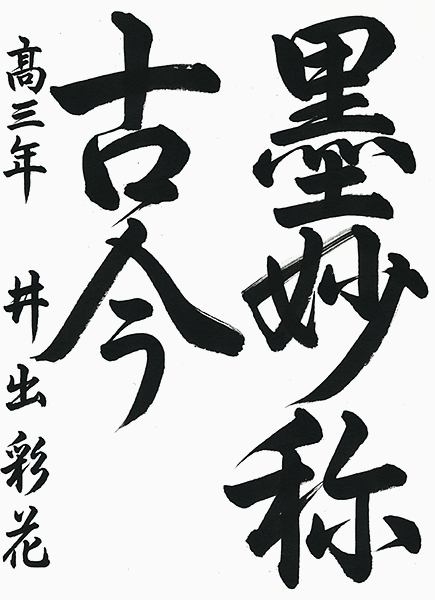 墨妙称
古今
髙三年 井出彩花